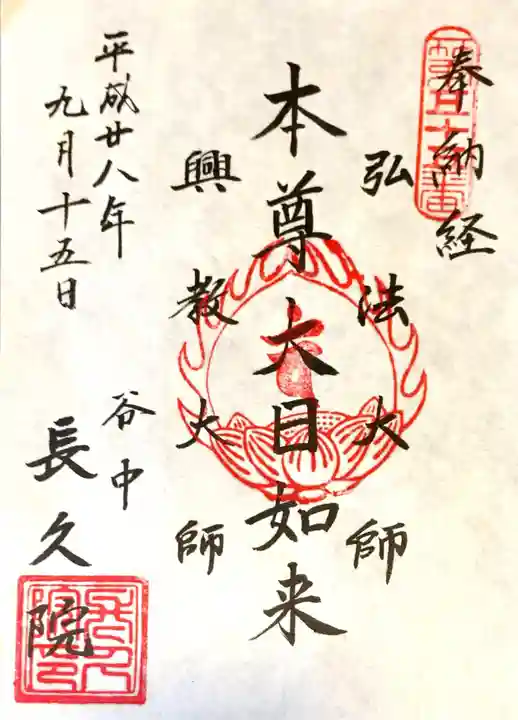 奉納経
弘法大師
本尊大日如来
興教大師
平成廿八年
九月十五日
谷中
長久院